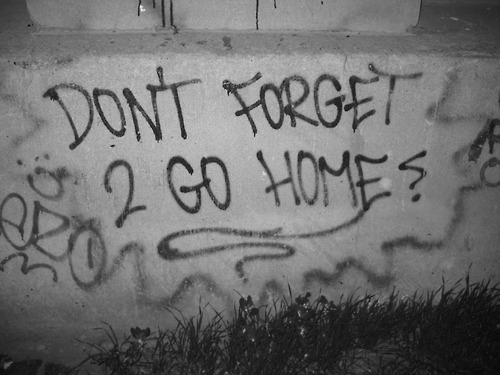 DON'T FORGET
2 GO HOME?